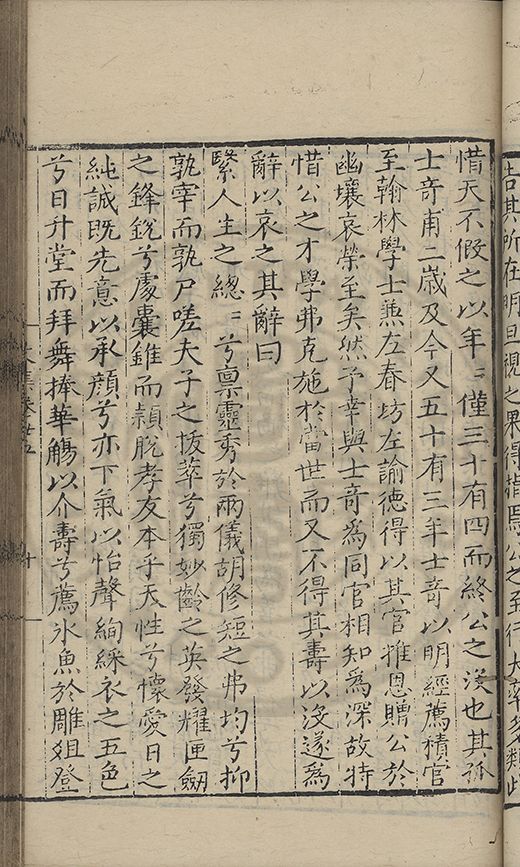 吉其所在明旦視之果得指焉公之至行大率多類此
惜天不假之以年〻僅三十有四而終公之沒也其孤
士竒甫二歲及今又五十有三年士竒以明經薦積官
至翰林學士兼左春坊左諭德得以其官推恩贈公於
幽壤哀榮至矣然予幸與士竒為同官相知為深故特
惜公之才學弗克施於當世而又不得其壽以沒遂為
辭以哀之其辭曰
繄人生之總〻兮禀靈秀於兩儀胡修短之弗均兮抑
孰宰而孰尸嗟夫子之拔萃兮獨妙齡之英發耀匣劒
之鋒銳兮處囊錐而穎脫孝友本乎天性兮懷愛日之
純誠既先意以承顔兮亦下氣以怡聲絢綵衣之五色
兮日升堂而拜舞捧華觴以介壽兮薦氷魚於雕俎登
文集卷廿五
十